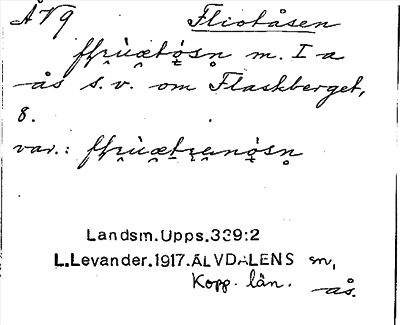 ÅVg Fliotåsen
m. I a
-ås s. v. om Flaskberget,
8.
var.:
Landsm.Upps.339:2
L.Levander.1917.ÄLVDALENS sn,
Kopp. län. -ås.